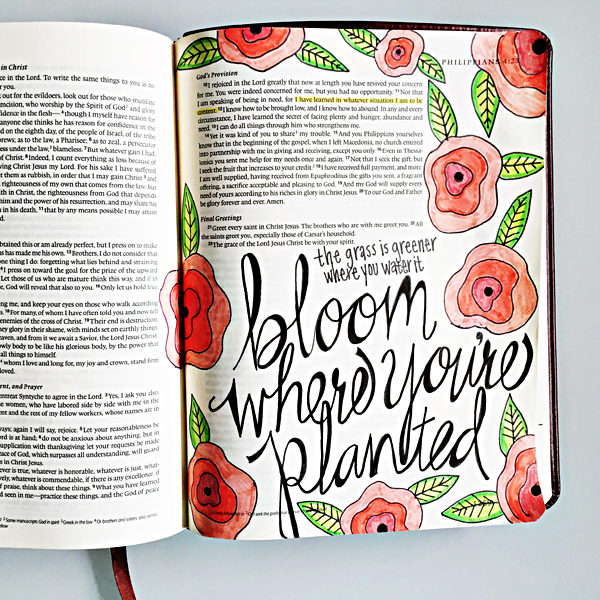 in Christ
ce in the Lord. To write the same things to you is no
r you.
out for the evildoers, look out for those who mutilate
cumcision, who worship by the Spirit of God and glory
nfidence in the flesh— though I myself have reason for
anyone else thinks he has reason for confidence in the
d on the eighth day, of the people of Israel, of the tribe
brews; as to the law, a Pharisee; as to zeal, a persecutor
ness under the law, blameless. But whatever gain I had,
f Christ. Indeed, I count everything as loss because of
wing Christ Jesus my Lord. For his sake I have suffered
t them as rubbish, in order that I may gain Christ and
righteousness of my own that comes from the law, but
th in Christ, the righteousness from God that depends
m and the power of his resurrection, and may share his
in his death, that by any means possible I may attain
d.
btained this or am already perfect, but I press on to make
s has made me his own. Brothers, I do not consider that
ne thing I do: forgetting what lies behind and straining
I press on toward the goal for the prize of the upward
Let those of us who are mature think this way, and if in
God will reveal that also to you. Only let us hold true
ng me, and keep your eyes on those who walk according
For many, of whom I have often told you and now tell
enemies of the cross of Christ. Their end is destruction,
ey glory in their shame, with minds set on earthly things.
eaven, and from it we await a Savior, the Lord Jesus Christ,
wly body to be like his glorious body, by the power that
all things to himself.
whom I love and long for, my joy and crown, stand firm
loved.
ent, and Prayer
entreat Syntyche to agree in the Lord. Yes, I ask you also,
se women, who have labored side by side with me in the
ent and the rest of my fellow workers, whose names are in
ways; again I will say, rejoice. Let your reasonableness be
ord is at hand; do not be anxious about anything, but in
upplication with thanksgiving let your requests be made
ace of God, which surpasses all understanding, will guard
s in Christ Jesus.
ver is true, whatever is honorable, whatever is just, what-
vely, whatever is commendable, if there is any excellence, if
of praise, think about these things. What you have learned
d seen in me—practice these things, and the God of peace
Some manuscripts God in spirit Greek in the law Or brothers and sisters; also verses
PHILIPPIANS 4:23
God's Provision
10 I rejoiced in the Lord greatly that now at length you have revived your concern
for me. You were indeed concerned for me, but you had no opportunity. 11 Not that
I am speaking of being in need, for I have learned in whatever situation I am to be
content. 12 I know how to be brought low, and I know how to abound. In any and every
circumstance, I have learned the secret of facing plenty and hunger, abundance and
need. 13 I can do all things through him who strengthens me.
14 Yet it was kind of you to share my trouble. 15 And you Philippians yourselves
know that in the beginning of the gospel, when I left Macedonia, no church entered
into partnership with me in giving and receiving, except you only. 16 Even in Thessa-
lonica you sent me help for my needs once and again. 17 Not that I seek the gift, but
I seek the fruit that increases to your credit. 18 I have received full payment, and more.
I am well supplied, having received from Epaphroditus the gifts you sent, a fragrant
offering, a sacrifice acceptable and pleasing to God. 19 And my God will supply every
need of yours according to his riches in glory in Christ Jesus. 20 To our God and Father
be glory forever and ever. Amen.
Final Greetings
21 Greet every saint in Christ Jesus. The brothers who are with me greet you. 22 All
the saints greet you, especially those of Caesar's household.
23 The grace of the Lord Jesus Christ be with your spirit.
the grass is greener
where you water it
bloom
where you're
planted